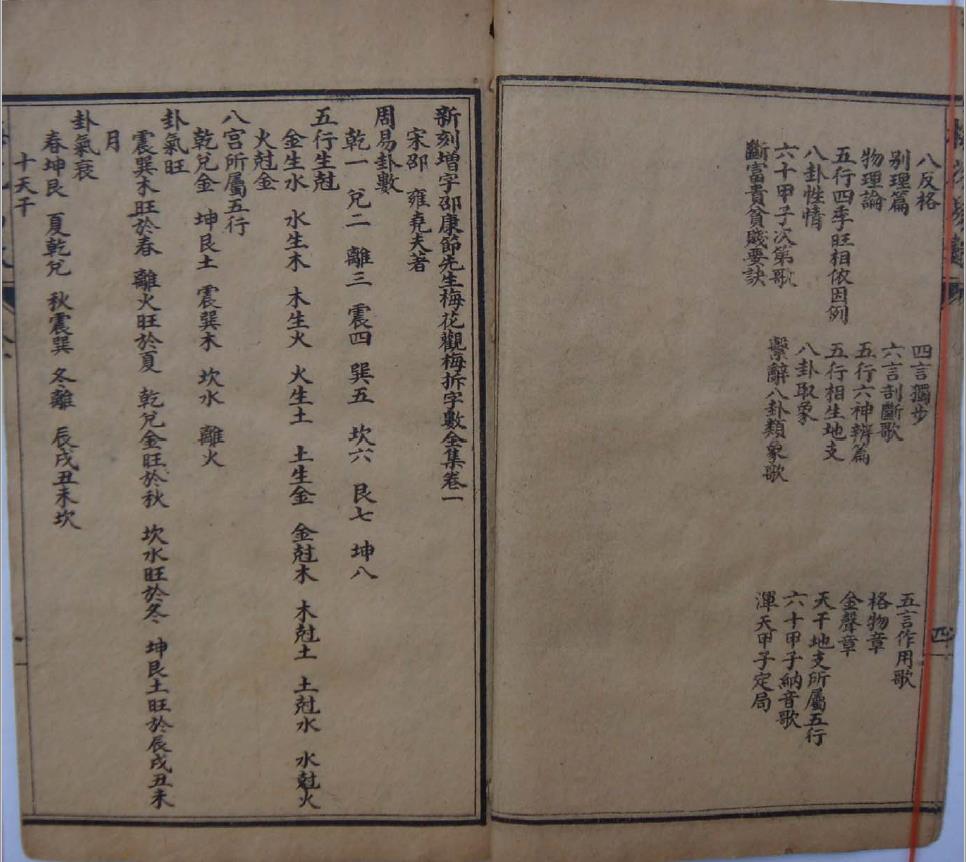 八反格　四言獨步　五言作用歌
别理篇　六言剖斷歌　格物章
物理論　五行六神辨篇　金聲章
五行四季旺相依因例　五行相生地支　天干地支所屬五行
八卦性情　八卦取象　六十甲子納音歌
六十甲子次第歌　繫辭八卦類象歌　渾天甲子定局
斷富貴貧賤要訣
四
新刻增字邵康節先生梅花觀梅拆字數全集卷一
宋邵　雍堯夫著
周易卦數
乾一　兌二　離三　震四　巽五　坎六　艮七　坤八
五行生尅
金生水　水生木　木生火　火生土　土生金　金尅木　木尅土　土尅水　水尅火
火尅金
八宮所屬五行
乾兌金　坤艮土　震巽木　坎水　離火
卦氣旺
震巽木旺於春　離火旺於夏　乾兌金旺於秋　坎水旺於冬　坤艮土旺於辰戌丑未
月
卦氣衰
春坤艮　夏乾兌　秋震巽　冬離　辰戌丑未坎
十天干